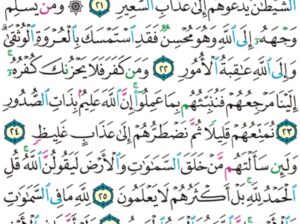 ٱلشَّيۡطَٰنُ يَدۡعُوهُمۡ إِلَىٰ عَذَابِ ٱلسَّعِيرِ ٢١ ۞ وَمَن يُسۡلِمۡ
وَجۡهَهُۥٓ إِلَى ٱللَّهِ وَهُوَ مُحۡسِنٞ فَقَدِ ٱسۡتَمۡسَكَ بِٱلۡعُرۡوَةِ ٱلۡوُثۡقَىٰۗ
وَإِلَى ٱللَّهِ عَٰقِبَةُ ٱلۡأُمُورِ ٢٢ وَمَن كَفَرَ فَلَا يَحۡزُنكَ كُفۡرُهُۥٓۚ
إِلَيۡنَا مَرۡجِعُهُمۡ فَنُنَبِّئُهُم بِمَا عَمِلُوٓاْۚ إِنَّ ٱللَّهَ عَلِيمُۢ بِذَاتِ ٱلصُّدُورِ
٢٣ نُمَتِّعُهُمۡ قَلِيلٗا ثُمَّ نَضۡطَرُّهُمۡ إِلَىٰ عَذَابٍ غَلِيظٖ ٢٤
وَلَئِن سَأَلۡتَهُم مَّنۡ خَلَقَ ٱلسَّمَٰوَٰتِ وَٱلۡأَرۡضَ لَيَقُولُنَّ ٱللَّهُۚ قُلِ
ٱلۡحَمۡدُ لِلَّهِۚ بَلۡ أَكۡثَرُهُمۡ لَا يَعۡلَمُونَ ٢٥ لِلَّهِ مَا فِي ٱلسَّمَٰوَٰتِ